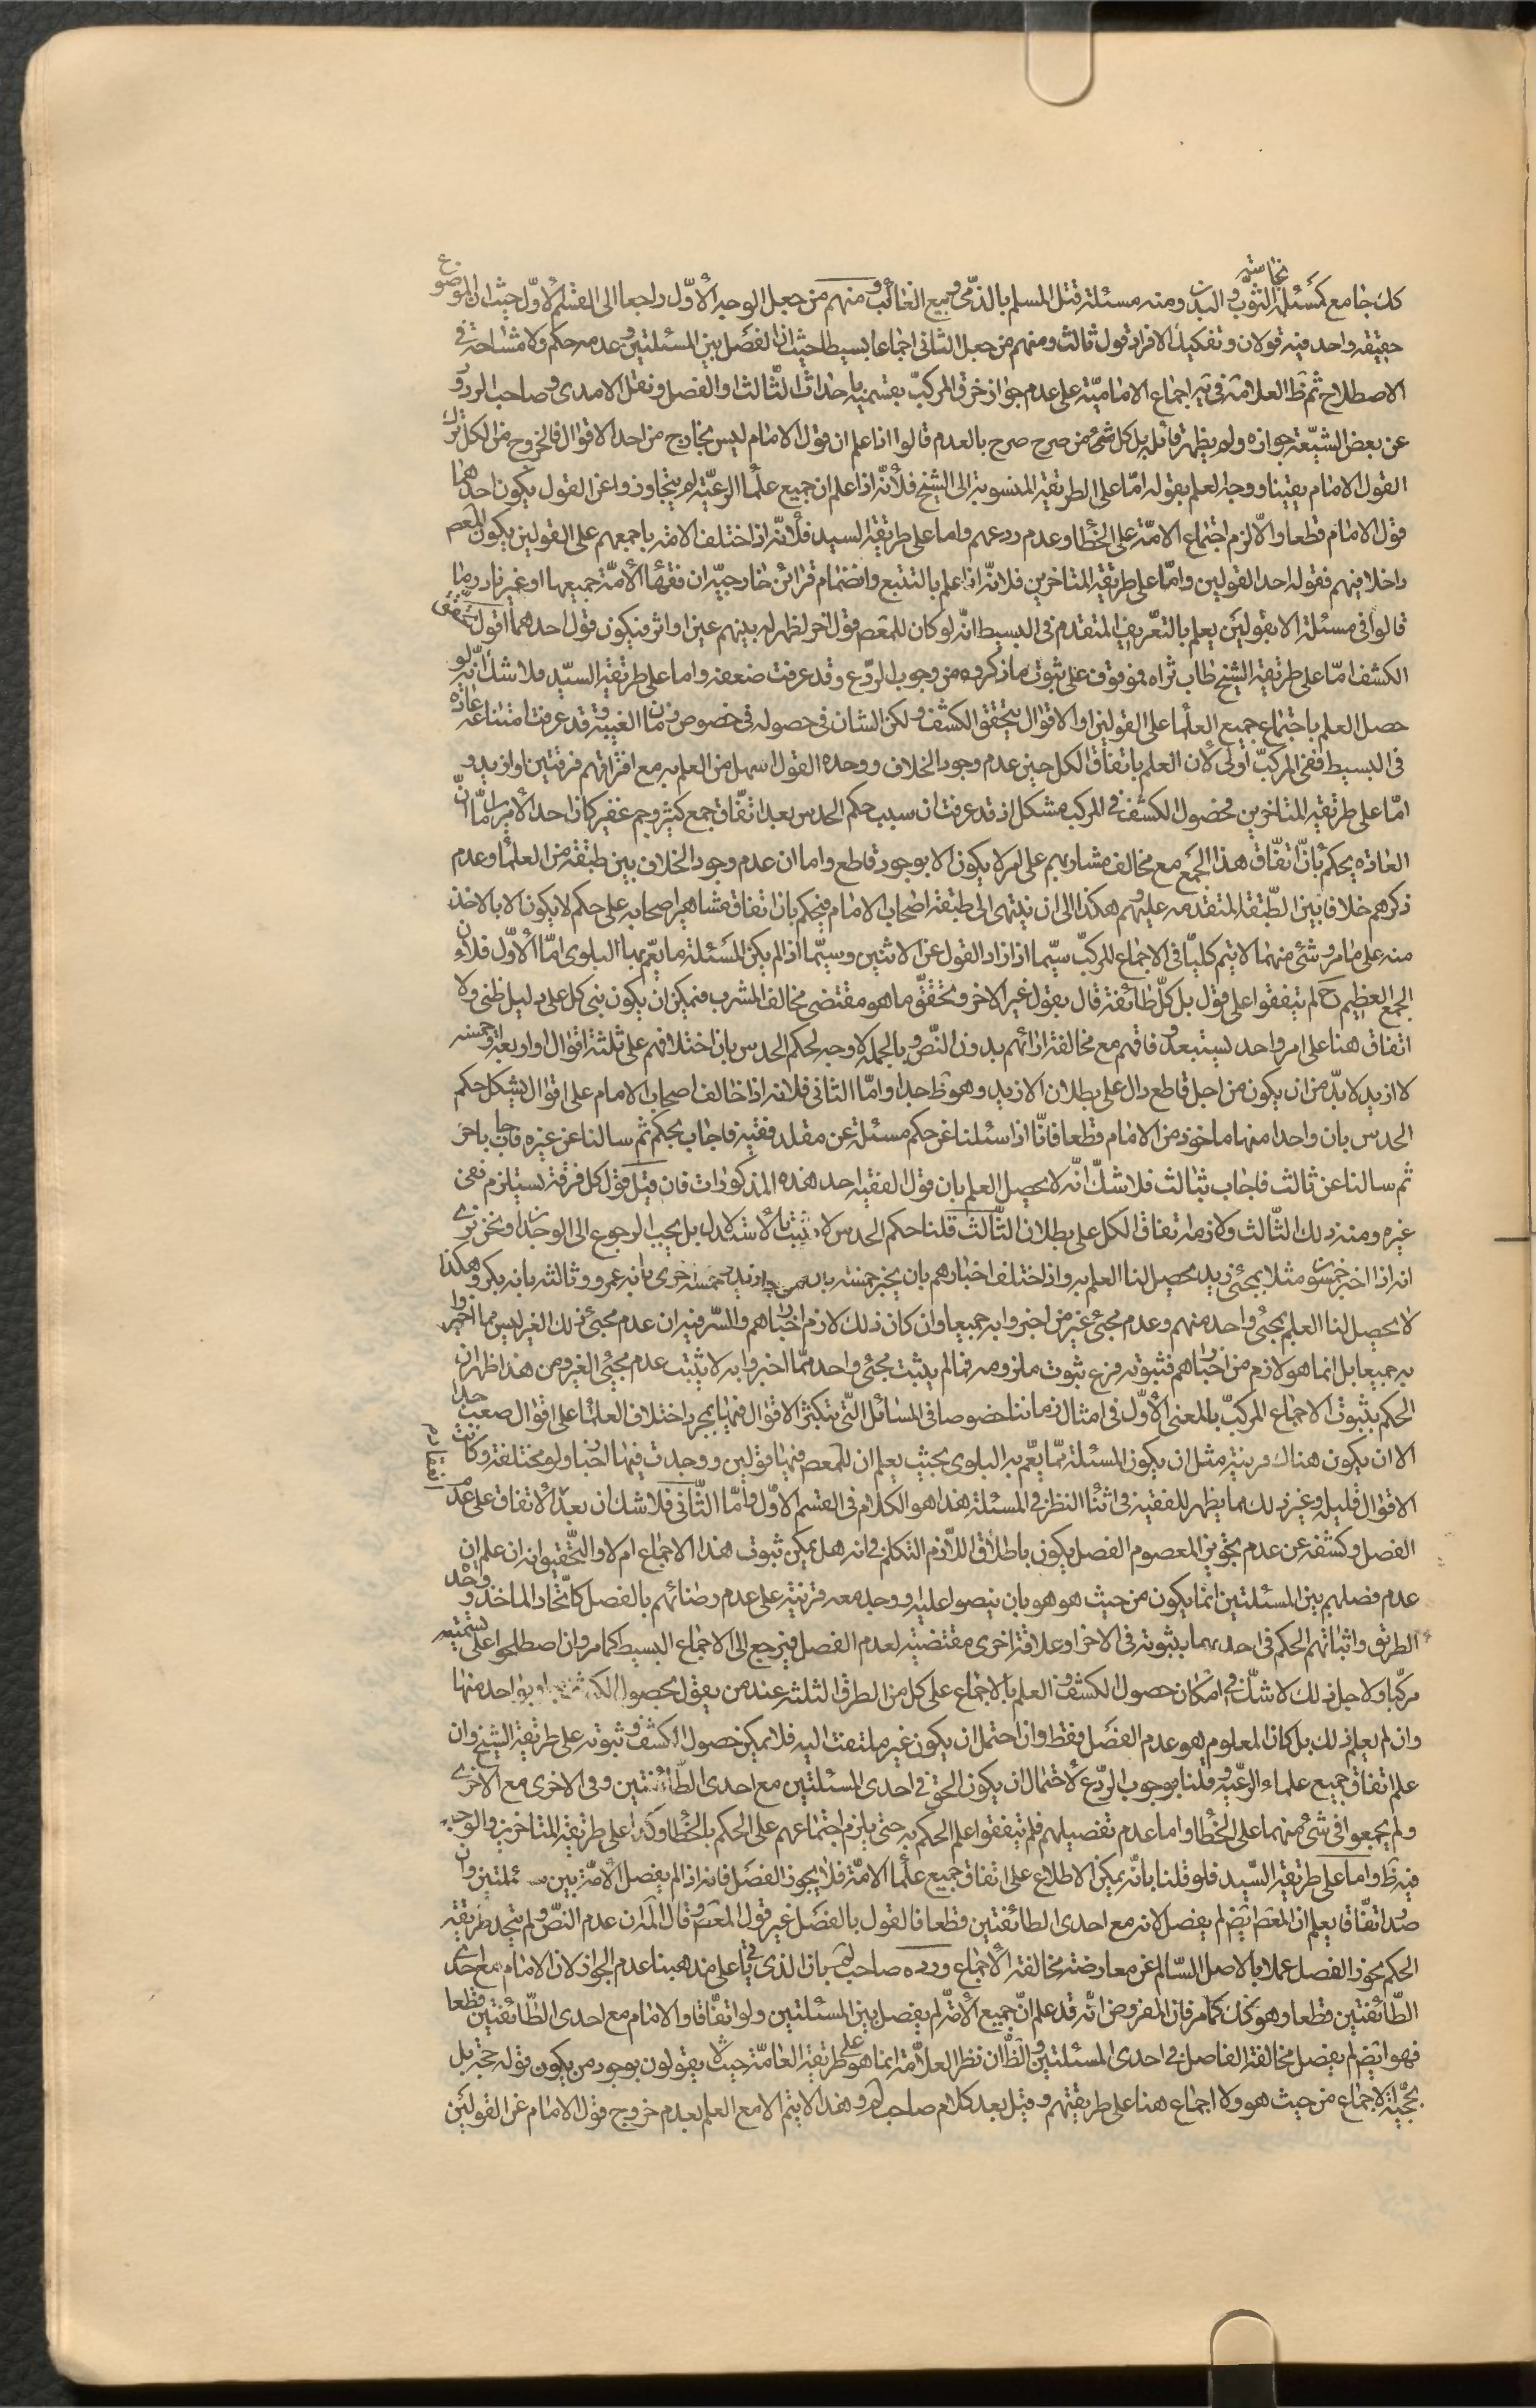 كك جامع كمسئلة نجاسة الثوب والبدن ومنه مسئلة قتل المسلم بالذمى وبيع الغائب ومنهم من جعل الوجه الأول راجعا الى القسم الأول حيث ان الموضوع
حقيقه واحد فيه قولان وتفكيك الافراد قول ثالث ومنهم من جعل الثانى اجماعا بسيطا حيث ان الفصل بين المسئلتين وعدمه حكم ولا مشاحة فى
الاصطلاح ثم نقل العلامة فى يه اجماع الامامية على عدم جواز خرق المركب بقسميه باحداث الثالث والفصل ونقل الامدى وصاحب الردود
عن بعض الشيعة جوازه ولم يظهر قائله بل كل شئ من صرح صرح بالعدم قالوا اذا علم ان قول الامام ليس بخارج من احد الاقوال فالخروج من الكل ترك
القول الامام يقينا ووجه العلم بقوله اما على الطريقة المنسوبة الى الشيخ فلأنه اذا علم ان جميع علماء الرعية لم يتجاوزوا عن القول يكون احدهما
قول الامام قطعا والا لزم اجتماع الامة على الخطاء وعدم ردعهم واما على طريقة السيد فلأنه اذا اختلف الامة باجمعهم على القولين يكون المعصم
داخلا فيهم فقوله احد القولين واما على طريقة المتاخرين فلانه اذا علم بالتتبع وانضمام قرائن خارجية ان فقهاء الأمة جميعها او غير نادر ما
قالوا فى مسئلة الا بقولين يعلم بالتعريف المتقدم فى البسيط انه لو كان للمعصم قول اخر لظهر له بينهم عين او اثر فيكون قول احدهما اقول تحقق
الكشف اما على طريقة الشيخ طاب ثراه فموقوف على ثبوت ما ذكروه من وجوب الردع وقد عرفت ضعفه واما على طريقة السيد فلا شك انه لو
حصل العلم باجتماع جميع العلماء على القولين او الاقوال يتحقق الكشف ولكن الشان فى حصوله فى خصوص زمان الغيبة وقد عرفت امتناعه عادة
فى البسيط ففى المركب اولى لان العلم باتفاق الكل حين عدم وجود الخلاف ووحدة القول اسهل من العلم به مع افتراقهم فرقتين او ازيد و
اما على طريقة المتاخرين فحصول الكشف فى المركب مشكل اذ قد عرفت ان سبب حكم الحدس بعد اتفاق جمع كثير وجم غفير كان احد الأمرين اما ان
العادة يحكم بان اتفاق هذا الجمع مع مخالف مشاربهم على امر لا يكون الا بوجود قاطع واما ان عدم وجود الخلاف بين طبقة من العلماء وعدم
ذكرهم خلافا بين الطبقة المتقدمة عليهم وهكذا الى ان ينتهى الى طبقة اصحاب الامام فيحكم بان اتفاق مشاهير اصحابه على حكم لا يكون الا بالاخذ
منه على ما مر وشئ منهما لا يتم كليا فى الاجماع المركب سيما اذا زاد القول عن الاثنين وسيما اذا لم يكن المسئلة ما يعم بها البلوى اما الأول فلان
الجمع العظيم ح لم يتفقوا على قول بل كل طائفة قال بقول غير الاخر وتحقق ما هو مقتضى مخالف المشرب فيمكن ان يكون بنى كل على دليل ظنى ولا
اتفاق هنا على امر واحد يستبعد وفاقهم مع مخالفة ارائهم بدون النص وبالجملة لا وجه لحكم الحدس بان اختلافهم على ثلثة اقوال او اربعة او خمسة
لا ازيد لا بد من ان يكون من اجل قاطع دال على بطلان الازيد وهو ظ جدا واما الثانى فلانه اذا خالف اصحاب الامام على اقوال يشكل حكم
الحدس بان واحدا منها ماخوذ من الامام قطعا فانا اذا سئلنا عن حكم مسئلة عن مقلد فقيه فاجاب بحكم ثم سالنا عن غيره فاجاب باخر
ثم سالنا عن ثالث فاجاب بثالث فلا شك انه لا يحصل العلم بان قول الفقيه احد هذه المذكورات فان قيل قول كل فرقة يستلزم نفى
غيره ومنه ذلك الثالث ولازمه اتفاق الكل على بطلان الثالث قلنا حكم الحدس لا يثبت بالاستدلال بل يجب الرجوع الى الوجدان ونحن نرى
انه اذا اخبر خمسون مثلا بمجئ زيد يحصل لنا العلم به واذا اختلف اخبارهم بان يخبر خمسة بان زيد وخمسة اخرى بانه عمرو وثالثه بانه بكر وهكذا
لا يحصل لنا العلم بمجئ واحد منهم وعدم مجئ غير من اخبروا به جميعا وان كان ذلك لازم اخبارهم والسر فيه ان عدم مجئ ذلك الغير ليس مما اخبروا
به جميعا بل انما هو لازم من اخبارهم فثبوته فرع ثبوت ملزومه فما لم يثبت مجئ واحد مما اخبروا به لا يثبت عدم مجئ الغير ومن هذا ظهر ان
الحكم بثبوت الاجماع المركب بالمعنى الأول فى امثال زماننا خصوصا فى المسائل التى يتكثر الاقوال فيها بمجرد اختلاف العلماء على اقوال صعب جدا
الا ان يكون هناك قرينة مثل ان يكون المسئلة مما يعم به البلوى بحيث يعلم ان للمعصم فيها قولين ووجدت فيها اخبار ولو مختلفة وكانت
الاقوال قليلة وغير ذلك مما يظهر للفقيه فى اثناء النظر فى المسئلة هذا هو الكلام فى القسم الاول واما الثانى فلا شك ان بعد الاتفاق على عدم
الفصل وكشفه عن عدم تجويز المعصوم الفصل يكون باطلا فاللازم التكلم فى انه هل يمكن ثبوت هذا الاجماع ام لا والتحقيق انه ان علم ان
عدم فصلهم بين المسئلتين انما يكون من حيث هو هو بان ينصوا عليه ووجد معه قرينة على عدم رضائهم بالفصل كاتحاد الماخذ ووحدة
الطريق واثباتهم الحكم فى احدهما بثبوته فى الاخر او علاقة اخرى مقتضية لعدم الفصل فيرجع الى الاجماع البسيط كما مر وان اصطلحوا على تسميته
مركبا ولاجل ذلك لا شك فى امكان حصول الكشف والعلم بالاجماع على كل من الطرق الثلثه عند من يقول بحصول الكشف بواحد منها
وان لم يعلم ذلك بل كان المعلوم هو عدم الفصل فقط وان احتمل ان يكون غير ملتفت اليه فلا يمكن حصول الكشف وثبوته على طريقة الشيخ وان
علم اتفاق جميع علماء الرعية وقلنا بوجوب الردع لاحتمال ان يكون الحق فى احدى المسئلتين مع احدى الطائفتين وفى الاخرى مع الاخرى
ولم يجمعوا فى شئ منهما على الخطاء واما عدم تفصيلهم فلم يتفقوا على الحكم به حتى يلزم اجتماعهم على الحكم بالخطاء وكذا على طريقة المتاخرين والوجه
فيه ظ واما على طريقة السيد فلو قلنا بانه يمكن الاطلاع على اتفاق جميع علماء الامة فلا يجوز الفصل فانه اذا لم يفصل الأمة بين مسئلتين وان
صدر اتفاقا يعلم ان المعصم ايضا لم يفصل لانه مع احدى الطائفتين قطعا فالقول بالفصل غير قول المعصم وقال ان عدم النص ولم يتحد طريقة
الحكم يجوز الفصل عملا بالاصل السالم عن معارضة مخالفة الأجماع ورده صاحب لم بان الذى ياتى على مذهبنا عدم الجواز لان الامام مع احدى
الطائفتين قطعا وهو كك كما مر فان المفروض انه قد علم ان جميع الأمة لم يفصل بين المسئلتين ولو اتفاقا والامام مع احدى الطائفتين قطعا
فهو ايضا لم يفصل مخالفة الفاصل فى احدى المسئلتين والظ ان نظر العلامة انما هو على طريقة العامة حيث لا يقولون بوجود من يكون قوله حجة بل
بحجية الاجماع من حيث هو ولا اجماع هنا على طريقتهم وقيل بعد كلام صاحب لم وهذا لا يتم الا مع العلم بعدم خروج قول الامام عن القولين